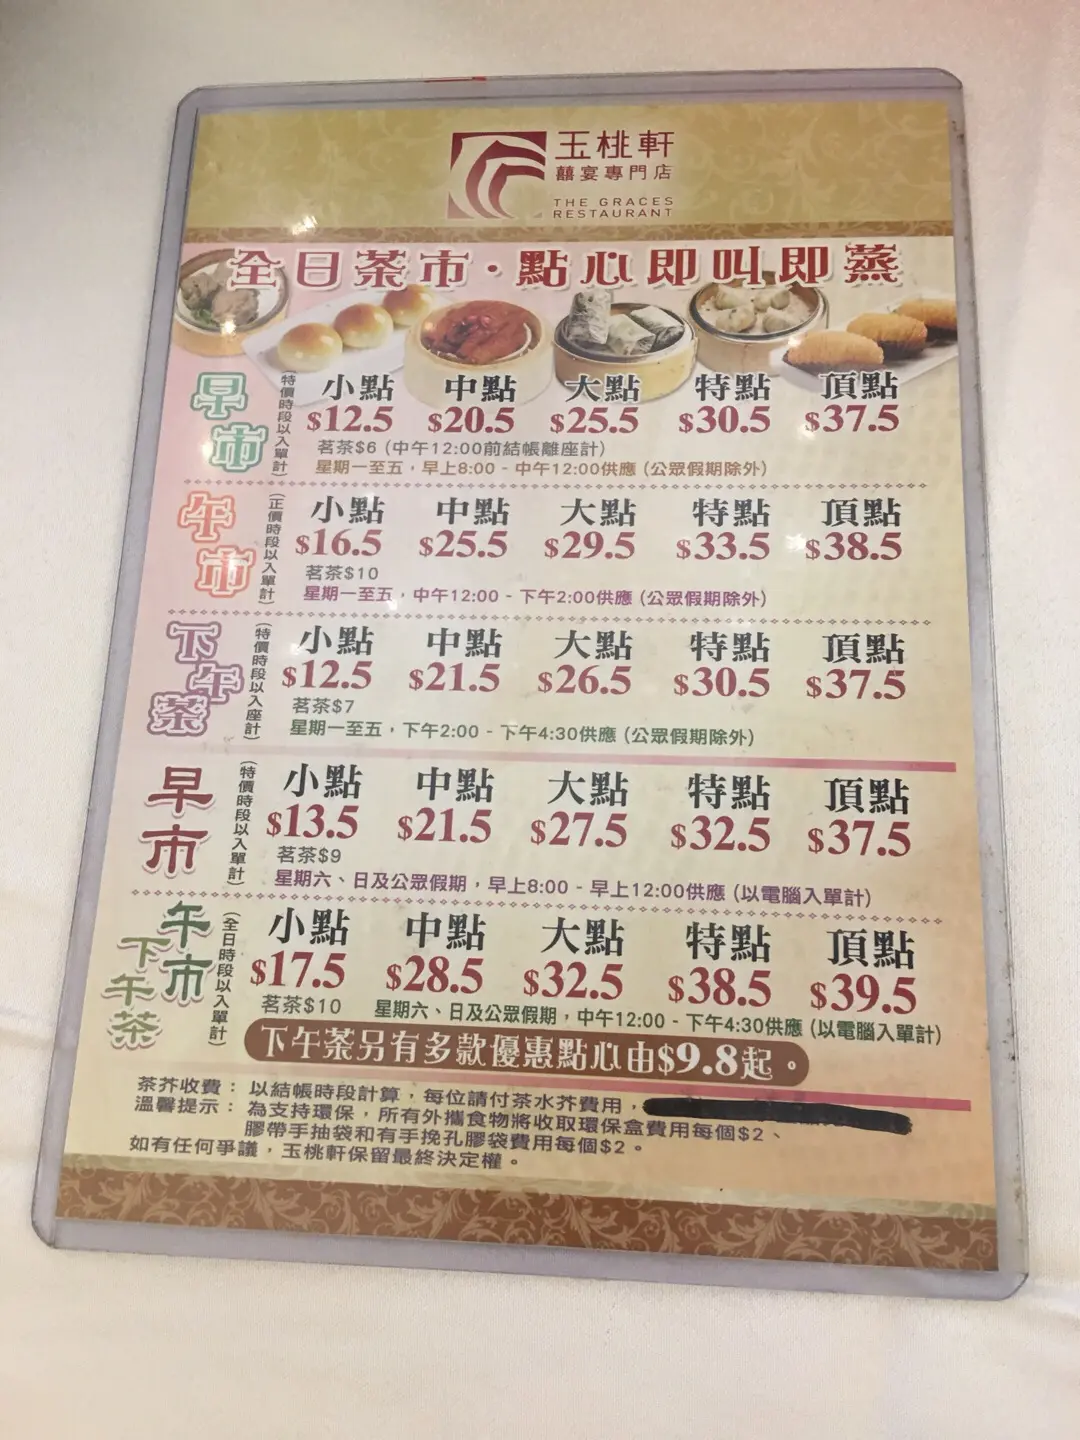 玉桃軒
囍宴專門店
THE GRACES
RESTAURANT
全日茶市·點心即叫即蒸
早市
(特價時段以入單計)
小點 中點 大點 特點 頂點
$12.5 $20.5 $25.5 $30.5 $37.5
茗茶$6 (中午12:00前結帳離座計)
星期一至五，早上8:00 - 中午12:00供應 (公眾假期除外)
午市
(正價時段以入單計)
小點 中點 大點 特點 頂點
$16.5 $25.5 $29.5 $33.5 $38.5
茗茶$10
星期一至五，中午12:00 - 下午2:00供應 (公眾假期除外)
下午茶
(特價時段以入座計)
小點 中點 大點 特點 頂點
$12.5 $21.5 $26.5 $30.5 $37.5
茗茶$7
星期一至五，下午2:00 - 下午4:30供應 (公眾假期除外)
早市
(特價時段以入單計)
小點 中點 大點 特點 頂點
$13.5 $21.5 $27.5 $32.5 $37.5
茗茶$9
星期六、日及公眾假期，早上8:00 - 早上12:00供應 (以電腦入單計)
午市
下午茶
(全日時段以入單計)
小點 中點 大點 特點 頂點
$17.5 $28.5 $32.5 $38.5 $39.5
茗茶$10 星期六、日及公眾假期，中午12:00 - 下午4:30供應 (以電腦入單計)
下午茶另有多款優惠點心由$9.8起。
茶芥收費：以結帳時段計算，每位請付茶水芥費用，
溫馨提示：為支持環保，所有外攜食物將收取環保盒費用每個$2、
膠帶手抽袋和有手挽孔膠袋費用每個$2。
如有任何爭議，玉桃軒保留最終決定權。